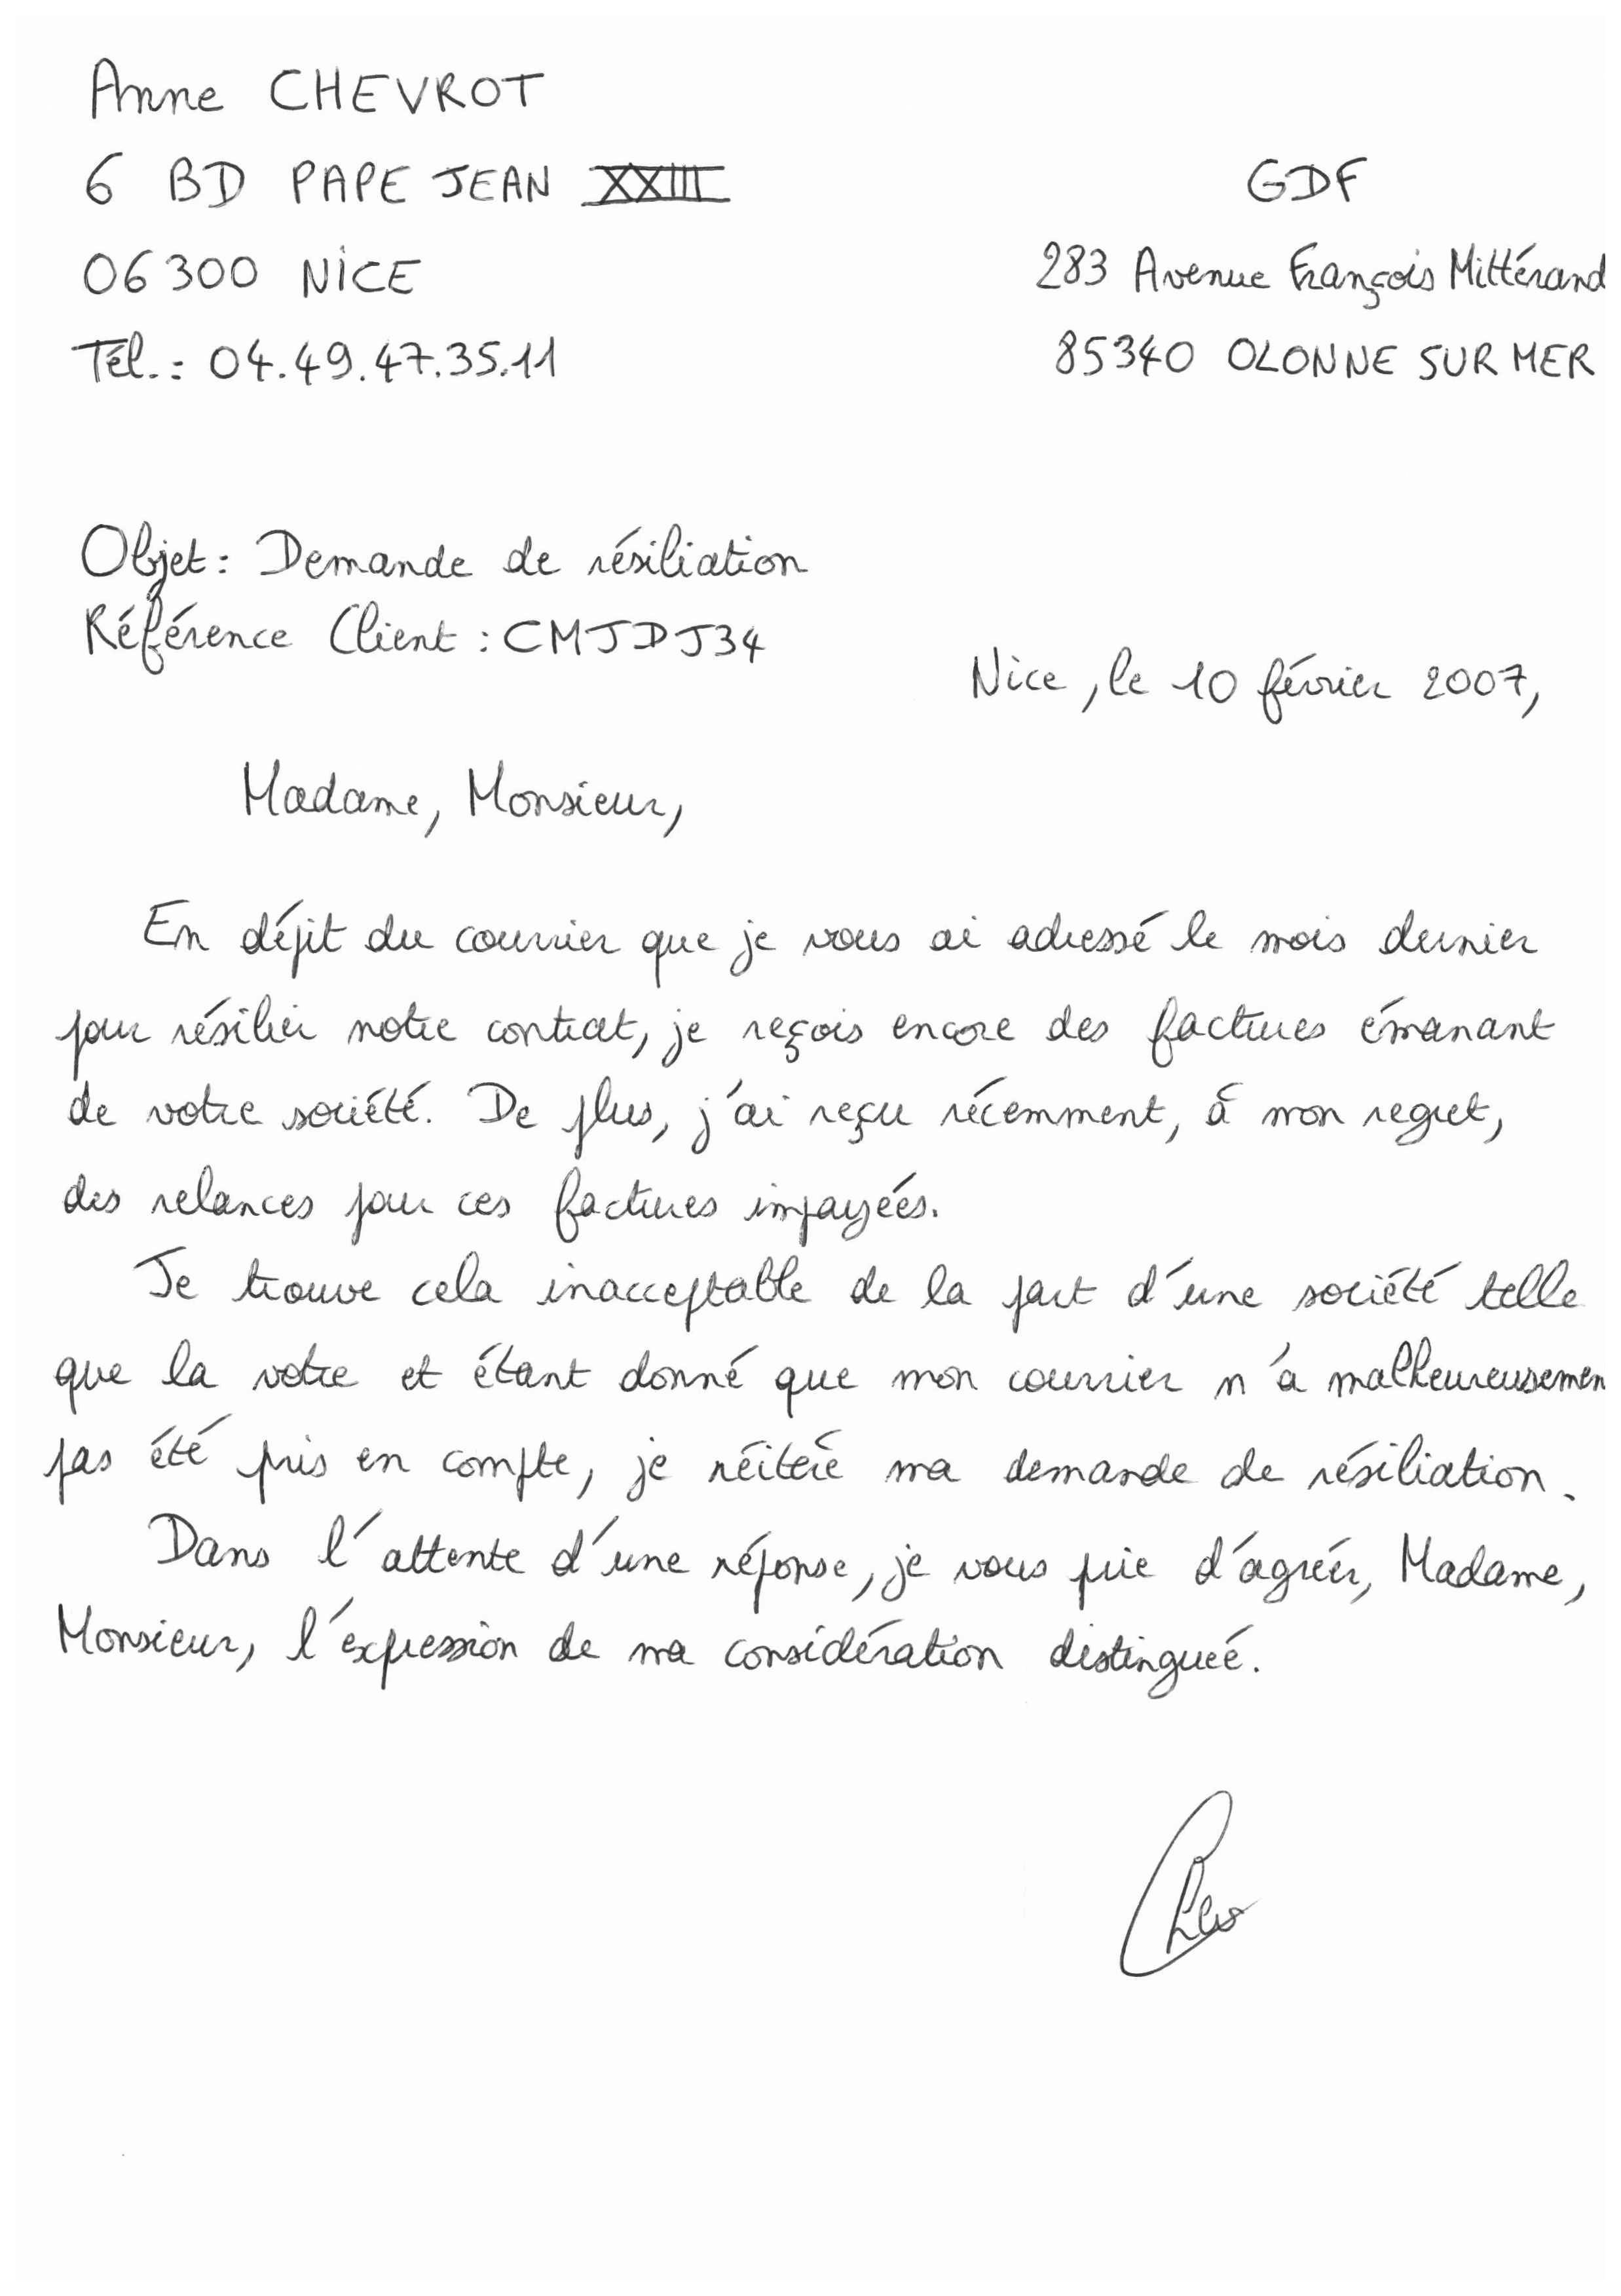 Anne CHEVROT
6 BD PAPE JEAN XXIII
06300 NICE
Tél.: 04.49.47.35.11
GDF
283 Avenue François Mittérand
85340 OLONNE SUR MER
Objet: Demande de résiliation
Référence Client : CMJDJ34
Nice, le 10 février 2007,
Madame, Monsieur,
En dépit du courrier que je vous ai adressé le mois dernier
pour résilier notre contrat, je reçois encore des factures émanant
de votre société. De plus, j'ai reçu récemment, à mon regret,
des relances pour ces factures impayées.
Je trouve cela inacceptable de la part d'une société telle
que la votre et étant donné que mon courrier n'a malheureusemen
pas été pris en compte, je réitère ma demande de résiliation.
Dans l'attente d'une réponse, je vous prie d'agréer, Madame,
Monsieur, l'expression de ma considération distinguée.